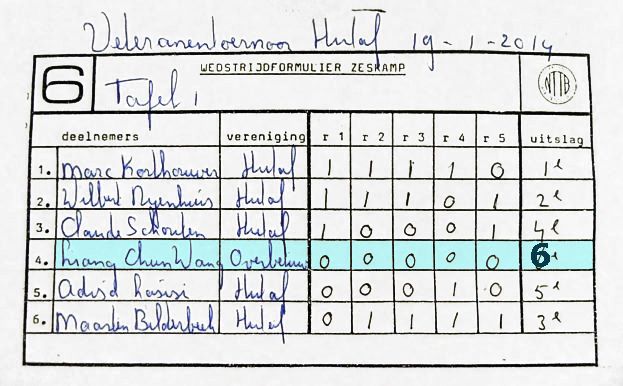 Veteranentoernooi Hutaf 19-1-2014
6 WEDSTRIJDFORMULIER ZESKAMP NTTB
Tafel 1
deelnemers vereniging r 1 r 2 r 3 r 4 r 5 uitslag
1. Marc Korthouwer Hutaf 1 1 1 1 0 1e
2. Wilbert Nyenhuis Hutaf 1 1 1 0 1 2e
3. Claude Schouten Hutaf 1 0 0 0 1 4e
4. Liang Chun Wang Overbetuwe 0 0 0 0 0 6e
5. Hutaf 0 0 0 1 0 5e
6. Maarten Bilderbeek Hutaf 0 1 1 1 1 3e